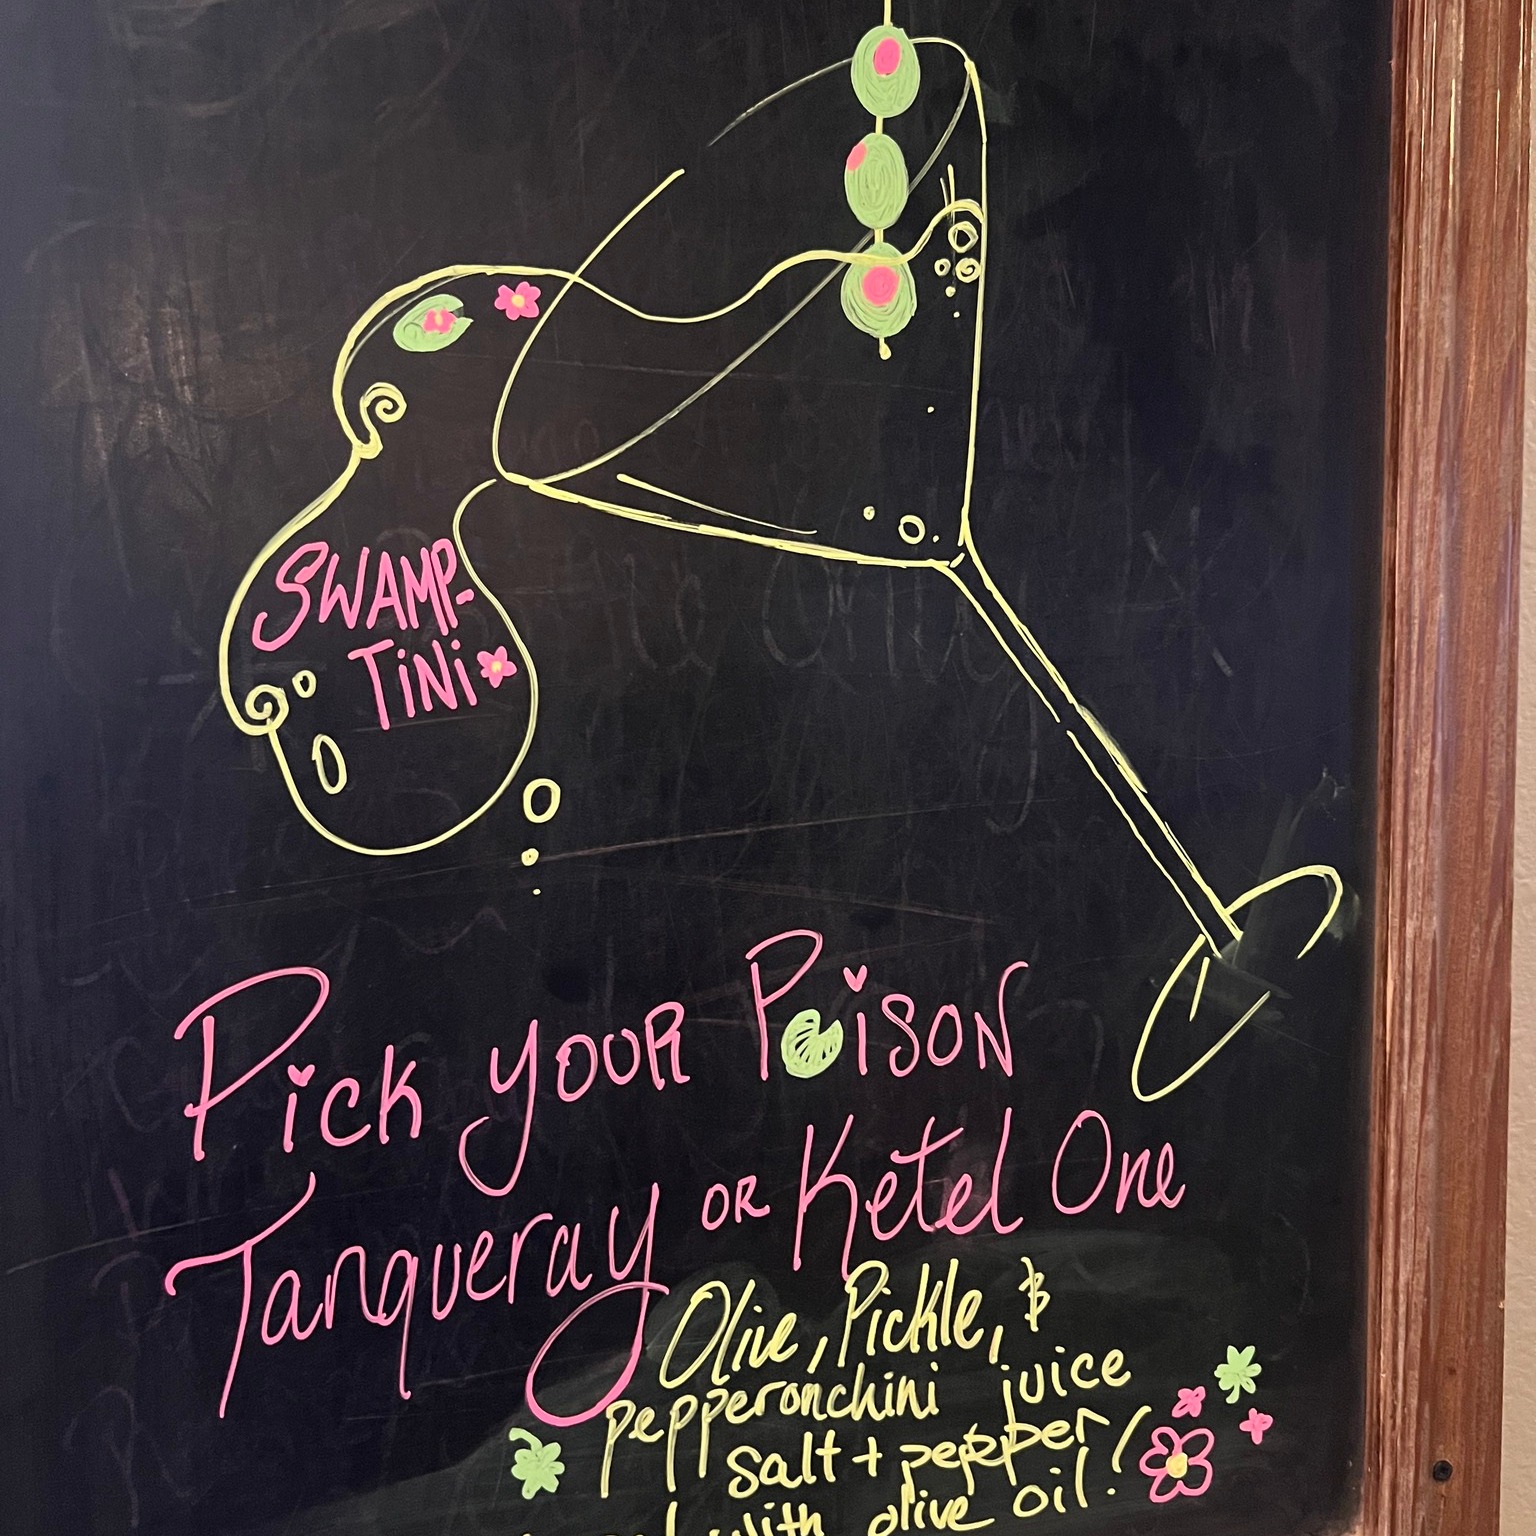 SWAMP-
TiNi
Pick your Poison
Tanqueray or Ketel One
Olive, Pickle, &
pepperonchini juice
salt + pepper!
with olive oil!